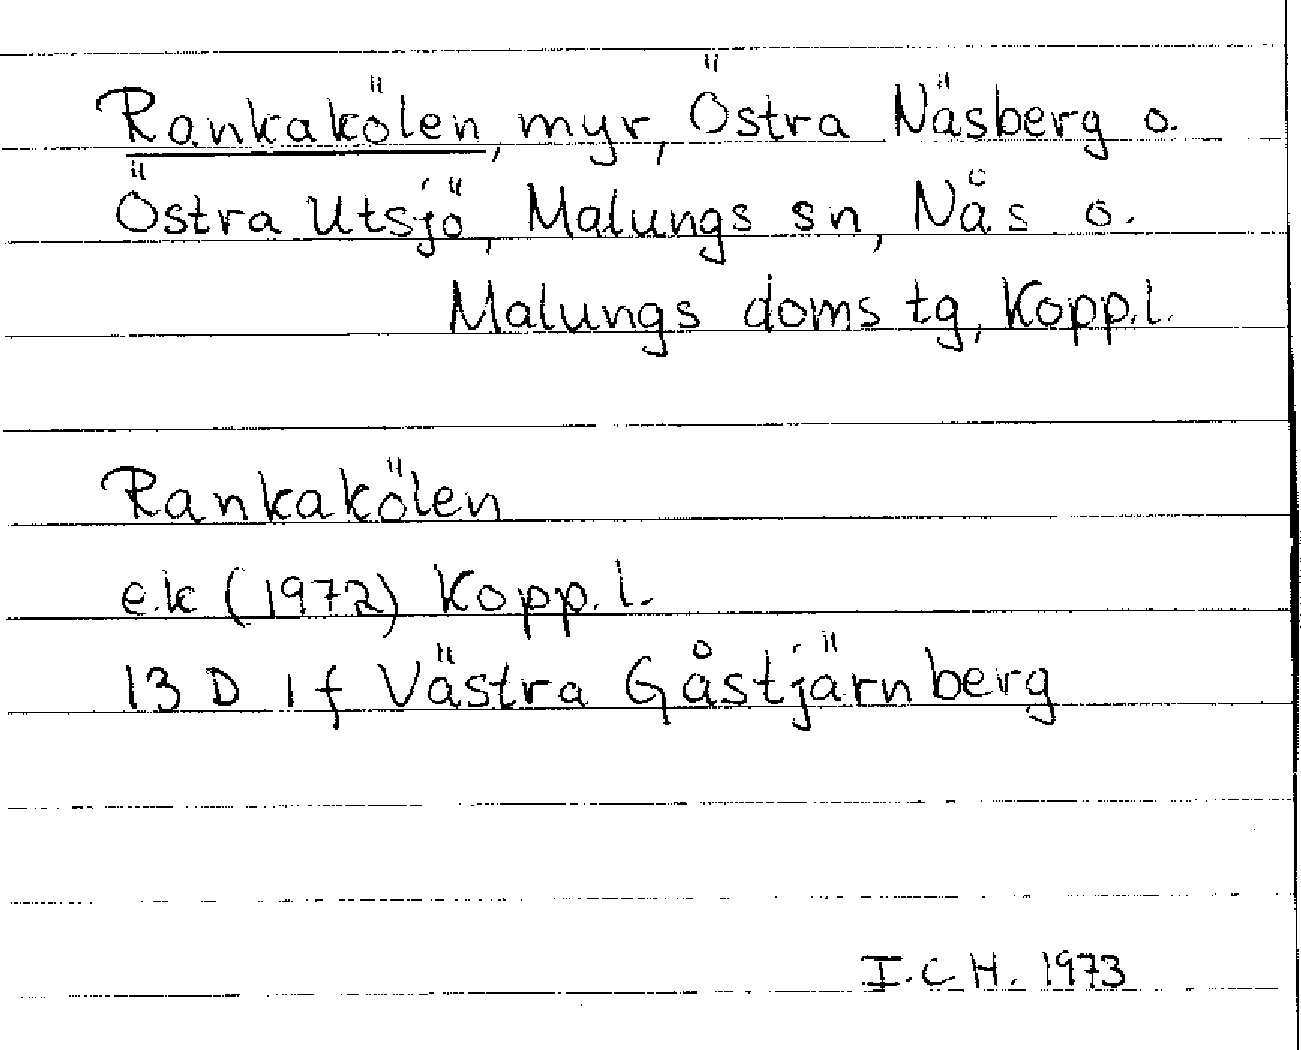 Rankakölen, myr, Östra Näsberg o.
Östra Utsjö, Malungs sn, Nås o.
Malungs doms tg, Kopp.l.
Rankakölen
e.k (1972) Kopp. l.
13 D 1 f Västra Gåstjärnberg
I.C.H. 1973